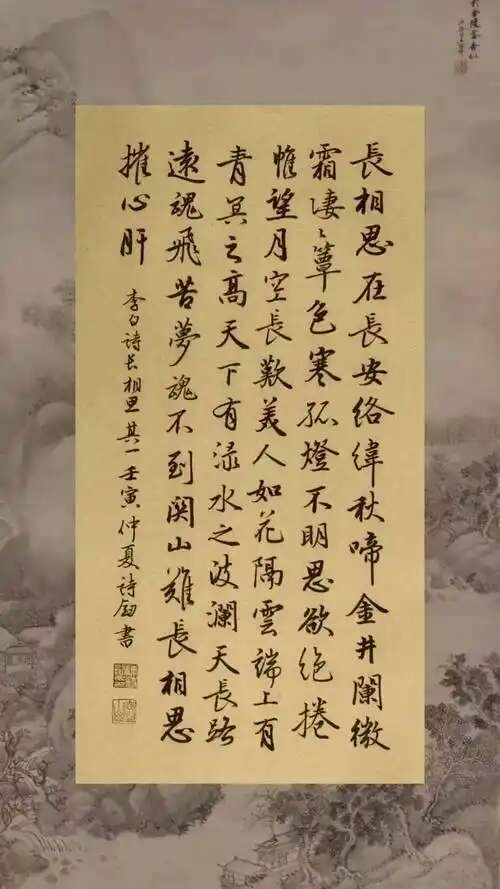 長相思在長安絡緯秋啼金井闌微
霜淒々簟色寒孤燈不明思欲絕捲
惟望月空長歎美人如花隔雲端上有
青冥之高天下有淥水之波瀾天長路
遠魂飛苦夢魂不到関山難長相思
摧心肝
李白诗长相思其一壬寅仲夏诗書